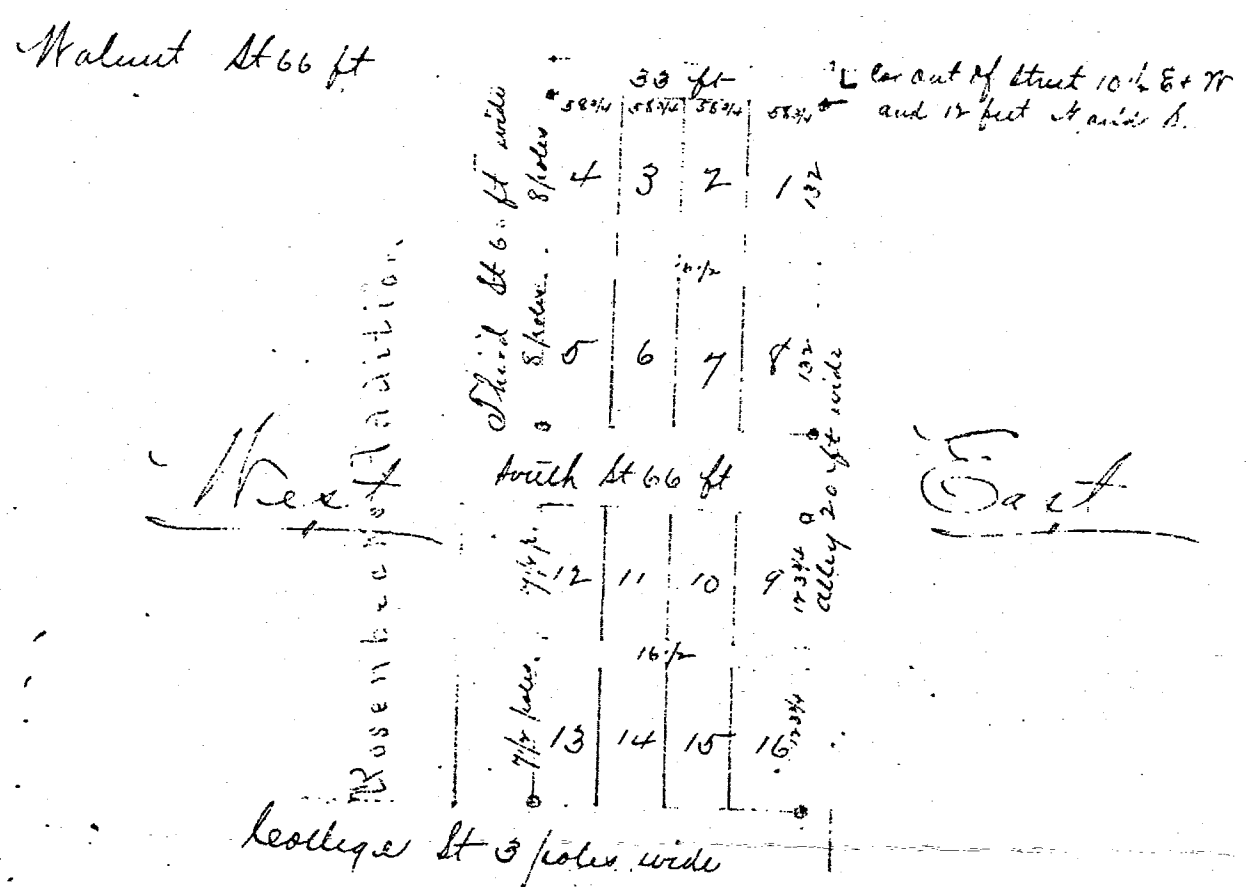 Walnut St 66 ft
33 ft
L Cor out of Street 10 ½ E & W
and 12 feet N and S.
58 3/4 58 3/4 58 3/4 58 3/4
Third St 6 ft wide
8 poles
4 3 2 1
132
8 poles
5 6 7 8
132
Rosenberger Addition
West
South St 66 ft
East
alley 20 ft wide
7 1/2 p.
12 11 10 9
123 3/4
16 1/2
7 1/2 poles
13 14 15 16
123 3/4
College St 3 poles wide